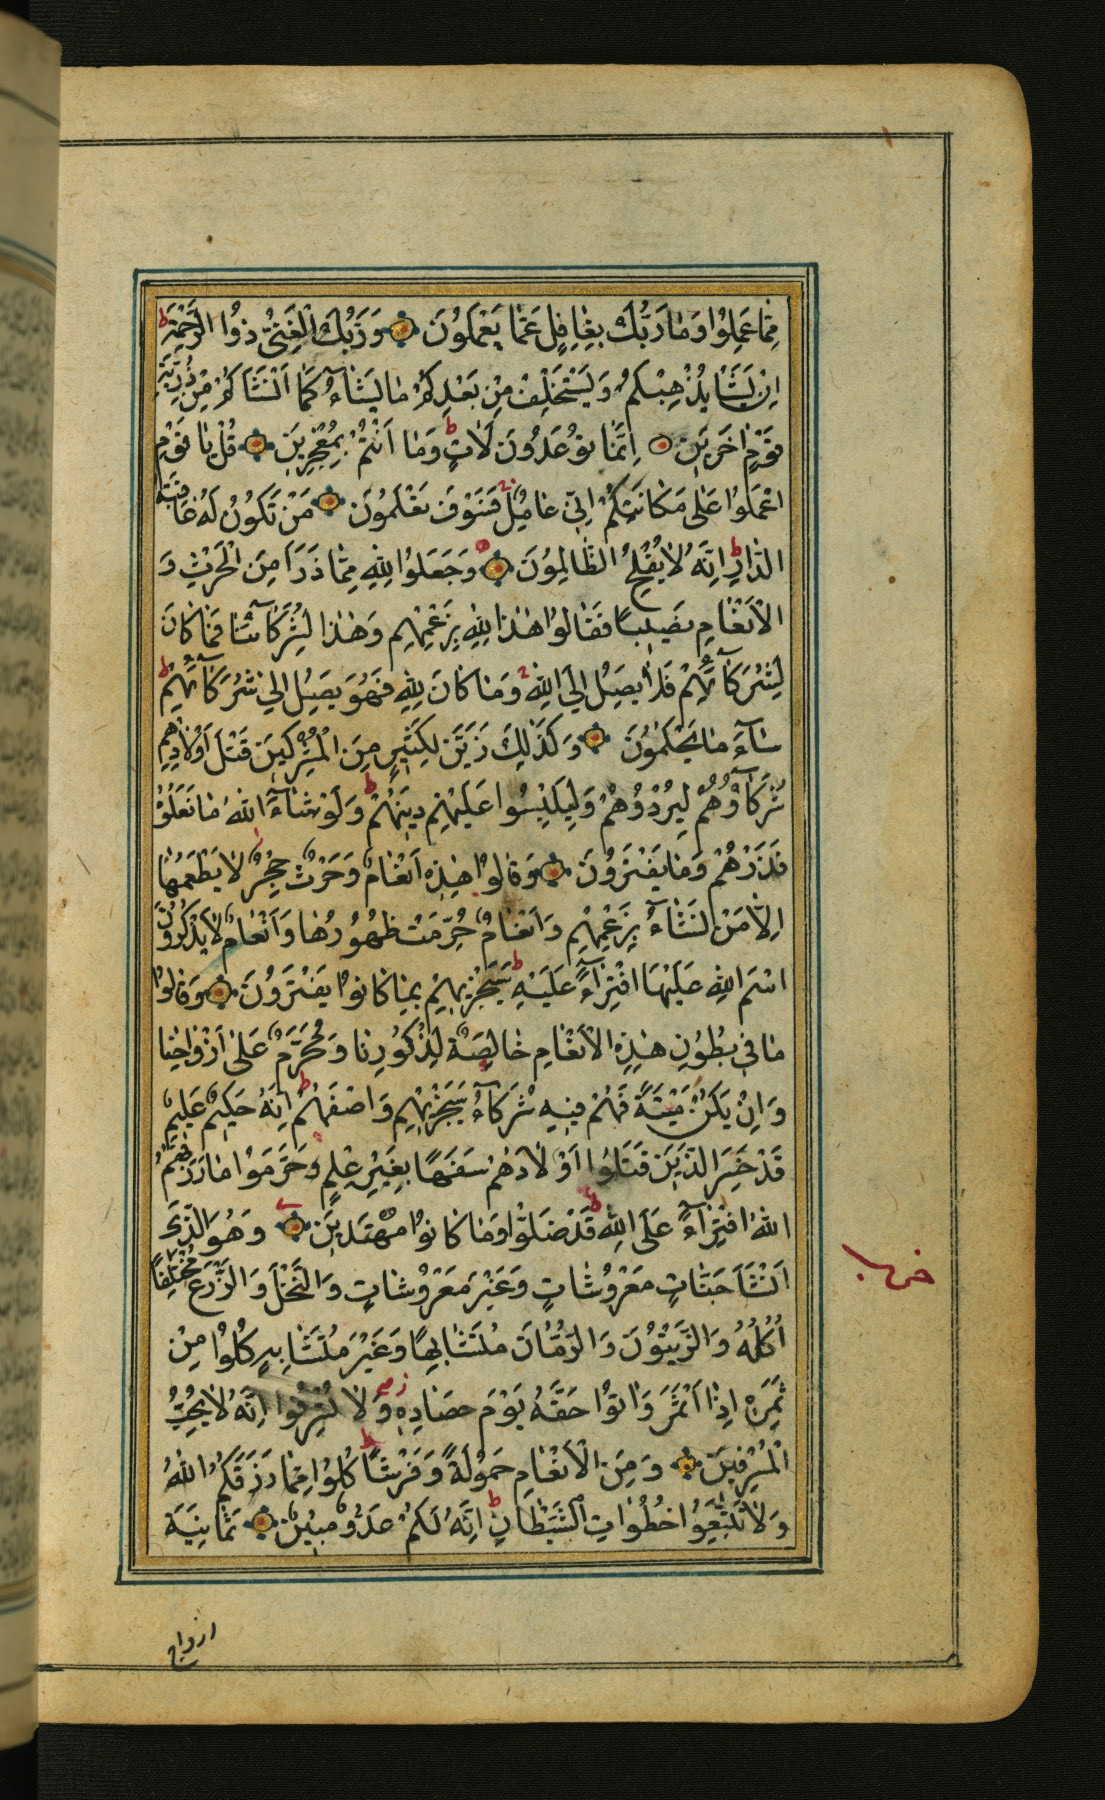 مِمَّا عَمِلُوا وَمَا رَبُّكَ بِغَافِلٍ عَمَّا يَعْمَلُونَ وَرَبُّكَ الْغَنِيُّ ذُوا الرَّحْمَةِ
اِنْ يَشَأْ يُذْهِبْكُمْ وَيَسْتَخْلِفْ مِنْ بَعْدِكُمْ مَا يَشَاءُ كَمَا اَنْشَاَكُمْ مِنْ ذُرِّيَّةِ
قَوْمٍ اٰخَرِينَ اِنَّمَا تُوعَدُونَ لَاٰتٍ وَمَا اَنْتُمْ بِمُعْجِزِينَ قُلْ يَا قَوْمِ
اعْمَلُوا عَلٰى مَكَانَتِكُمْ اِنِّي عَامِلٌ فَسَوْفَ تَعْلَمُونَ مَنْ تَكُونُ لَهُ عَاقِبَةُ
الدَّارِ اِنَّهُ لَا يُفْلِحُ الظَّالِمُونَ وَجَعَلُوا لِلّٰهِ مِمَّا ذَرَاَ مِنَ الْحَرْثِ وَ
الْاَنْعَامِ نَصِيبًا فَقَالُوا هٰذَا لِلّٰهِ بِزَعْمِهِمْ وَهٰذَا لِشُرَكَآئِنَا فَمَا كَانَ
لِشُرَكَآئِهِمْ فَلَا يَصِلُ اِلَى اللّٰهِ وَمَا كَانَ لِلّٰهِ فَهُوَ يَصِلُ اِلٰى شُرَكَآئِهِمْ
سَآءَ مَا يَحْكُمُونَ وَكَذٰلِكَ زَيَّنَ لِكَثِيرٍ مِنَ الْمُشْرِكِينَ قَتْلَ اَوْلَادِهِمْ
شُرَكَآؤُهُمْ لِيُرْدُوهُمْ وَلِيَلْبِسُوا عَلَيْهِمْ دِينَهُمْ وَلَوْ شَآءَ اللّٰهُ مَا فَعَلُوهُ
فَذَرْهُمْ وَمَا يَفْتَرُونَ وَقَالُوا هٰذِهِ اَنْعَامٌ وَحَرْثٌ حِجْرٌ لَا يَطْعَمُهَا
اِلَّا مَنْ نَشَآءُ بِزَعْمِهِمْ وَاَنْعَامٌ حُرِّمَتْ ظُهُورُهَا وَاَنْعَامٌ لَا يَذْكُرُونَ
اسْمَ اللّٰهِ عَلَيْهَا افْتِرَآءً عَلَيْهِ سَيَجْزِيهِمْ بِمَا كَانُوا يَفْتَرُونَ وَقَالُوا
مَا فِي بُطُونِ هٰذِهِ الْاَنْعَامِ خَالِصَةٌ لِذُكُورِنَا وَمُحَرَّمٌ عَلٰى اَزْوَاجِنَا
وَاِنْ يَكُنْ مَيْتَةً فَهُمْ فِيهِ شُرَكَآءُ سَيَجْزِيهِمْ وَصْفَهُمْ اِنَّهُ حَكِيمٌ عَلِيمٌ
قَدْ خَسِرَ الَّذِينَ قَتَلُوا اَوْلَادَهُمْ سَفَهًا بِغَيْرِ عِلْمٍ وَحَرَّمُوا مَا رَزَقَهُمُ
اللّٰهُ افْتِرَآءً عَلَى اللّٰهِ قَدْ ضَلُّوا وَمَا كَانُوا مُهْتَدِينَ وَهُوَ الَّذِي
اَنْشَاَ جَنَّاتٍ مَعْرُوشَاتٍ وَغَيْرَ مَعْرُوشَاتٍ وَالنَّخْلَ وَالزَّرْعَ مُخْتَلِفًا
اُكُلُهُ وَالزَّيْتُونَ وَالرُّمَّانَ مُتَشَابِهًا وَغَيْرَ مُتَشَابِهٍ كُلُوا مِنْ
ثَمَرِهِ اِذَا اَثْمَرَ وَاٰتُوا حَقَّهُ يَوْمَ حَصَادِهِ وَلَا تُسْرِفُوا اِنَّهُ لَا يُحِبُّ
الْمُسْرِفِينَ وَمِنَ الْاَنْعَامِ حَمُولَةً وَفَرْشًا كُلُوا مِمَّا رَزَقَكُمُ اللّٰهُ
وَلَا تَتَّبِعُوا خُطُوَاتِ الشَّيْطَانِ اِنَّهُ لَكُمْ عَدُوٌّ مُبِينٌ ثَمَانِيَةَ
ازواج